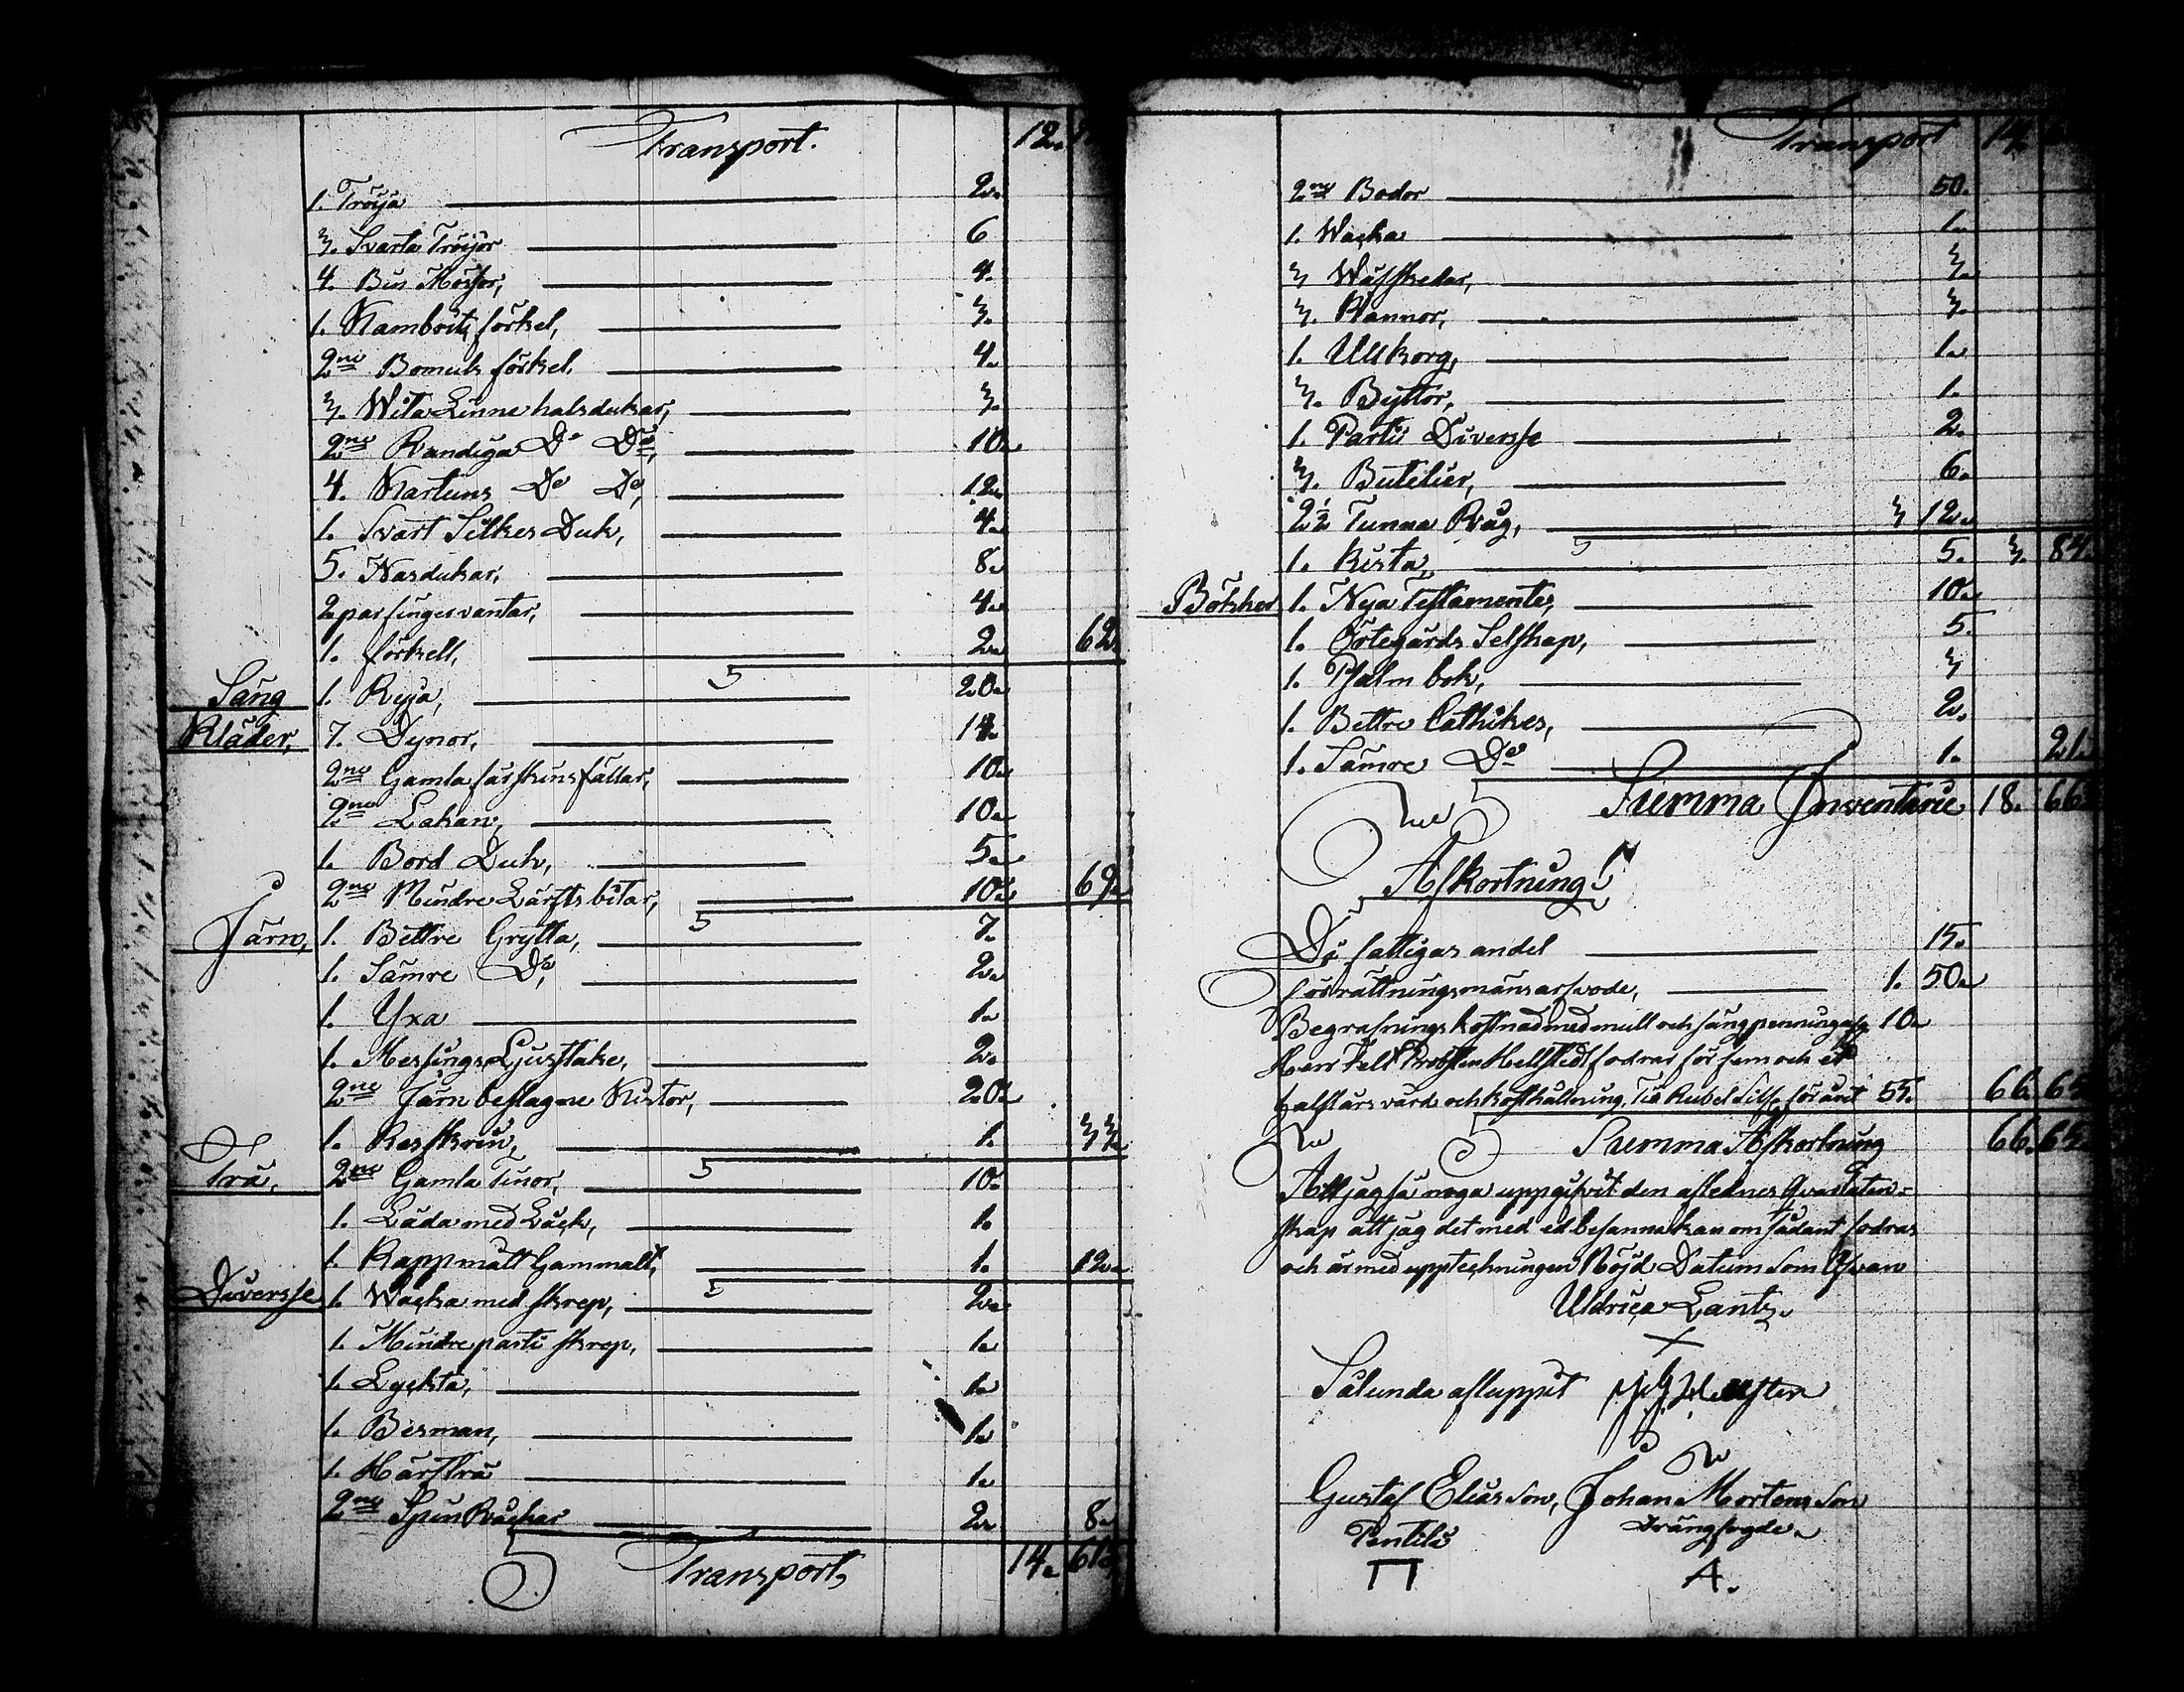 Transport. 12.
1. Tröija 2.
3. Svarta Tröijor 6
4. Bin Mössor, 4.
1. Kambrits förkel, 3.
2ne Bomuls förkel. 4.
3. Wita Linne halsdukar, 3.
2ne Randiga Do Do, 10.
4. Kartuns Do Do, 12.
1. Svart Silkes Duk, 4.
5. Näsdukar, 8.
2 par fingervantar, 4.
1. förkell, 2. 62.
Säng 1. Ryja, 20.
Kläder, 7. Dynor, 14.
2ne Gamla fårskinsfällar, 10.
2ne Lakan, 10.
1. Bord Duk, 5.
2ne Mindre Lärfts bitar, 10. 69.
Järn, 1. Bettre Grytta, 7.
1. Sämre Do, 2.
1. Yxa 1.
1. Messings Ljusstake, 2.
2ne Järn beslagne Kistor, 20.
1. Resskrin, 1. 33.
Trä, 2ne Gamla Tinor, 10.
1. Låda med Låck, 1.
1. Kappmått Gammalt, 1. 12.
Diversse 1. Wacka med skrep, 2.
1. Mindre parti skrep, 1.
1. Lyckta, 1.
1. Besman, 1.
1. Härstra 1.
2ne Spin Råckar 2. 8.
Transport, 14. 61.
Transport 14.
2ne Bodor 50.
1. Wacka 1.
3 Wäfskedar, 3.
3. Kannor, 3.
1. Ullkorg, 1.
3. Byttor, 1.
1. Parti Diversse 2.
3. Butelier, 6.
2½ Tunna Råg, 3 12.
1. Kista, 5. 3. 84.
Böcker 1. Nya Testamente, 10.
1. Örtegårds Selskap, 5.
1. Psalm bok, 3
1. Bettre Cathikes, 2.
1. Sämre Do 1. 21.
Summa Inventarie 18. 66.
Afkortning
De fattigas andel 15.
förrättningsmäns arfvode, 1. 50.
Begrafnings kostnad med mull och sängpenning 10.
Herr Felt Probsten Hellstedt fodrar för fem och ett
halft års vård och kosthållning Tio Rubel Silf. för året 55. 66. 65.
Summa Afkortning 66. 65.
Att jag så noga uppgifvit den aflednes Qvarlåten-
skap att jag det med ed besanna kan om sådant fodras
och är med uppteckningen Nöjd Datum som Ofvan
Uldrica Lantz.
Sålunda aflupput
Gustaf Eliasson, Johan Mortensson
Pentilä Drängfogde.
A.